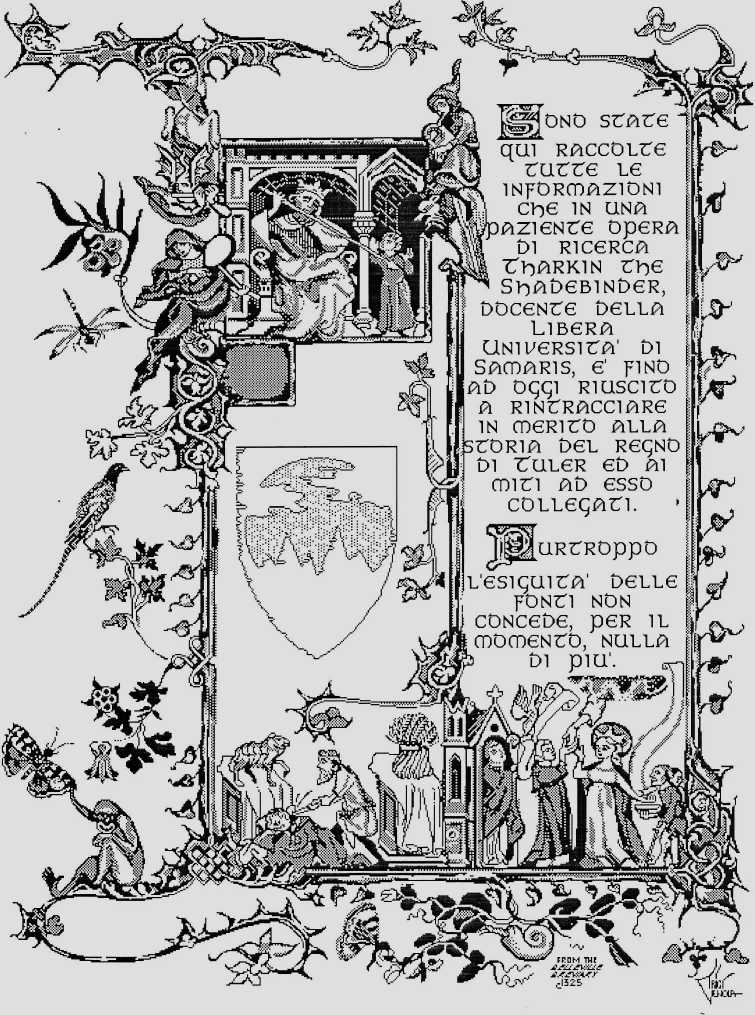 SONO STATE
QUI RACCOLTE
TUTTE LE
INFORMAZIONI
CHE IN UNA
PAZIENTE OPERA
DI RICERCA
THARKIN THE
SHADEBINDER,
DOCENTE DELLA
LIBERA
UNIVERSITA' DI
SAMARIS, E' FINO
AD OGGI RIUSCITO
A RINTRACCIARE
IN MERITO ALLA
STORIA DEL REGNO
DI TULER ED AI
MITI AD ESSO
COLLEGATI.
PURTROPPO
L'ESIGUITA' DELLE
FONTI NON
CONCEDE, PER IL
MOMENTO, NULLA
DI PIU'.
FROM THE
BELLEVILLE
BREVIARY
c1325